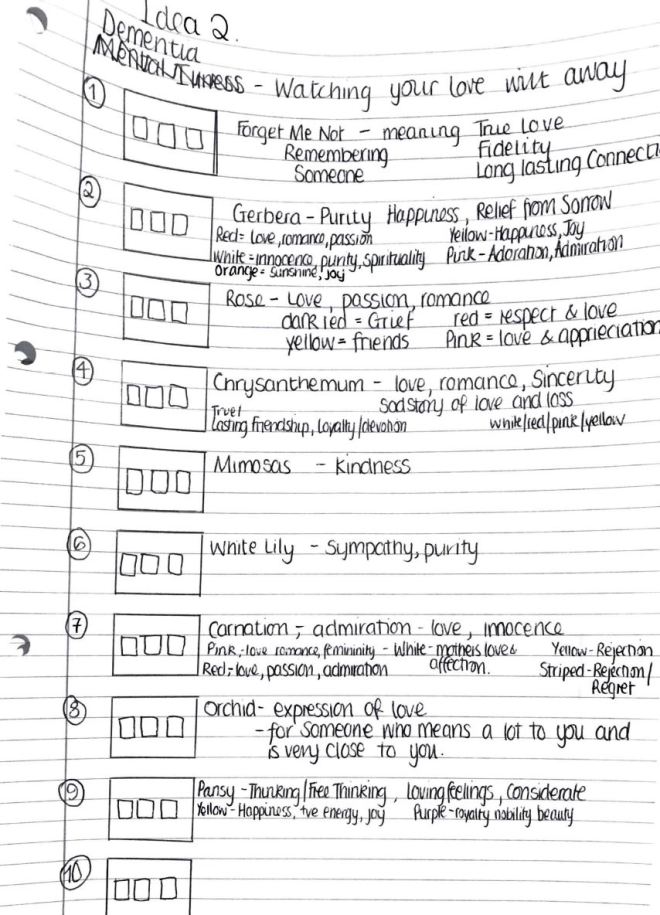 Idea 2.
Dementia
Mental Illness - Watching your love wilt away
1 Forget Me Not - meaning True Love
Remembering Fidelity
Someone Long lasting Connecti
2 Gerbera - Purity Happiness, Relief from Sorrow
Red = love, romance, passion Yellow - Happiness, Joy
White = innocence, purity, spirituality Pink - Adoration, Admiration
Orange = sunshine, joy
3 Rose - Love, passion, romance
dark red = Grief red = respect & love
yellow = friends Pink = love & appreciation
4 Chrysanthemum - love, romance, sincerity
Sad story of love and loss
True/
Lasting friendship, loyalty/devotion white/red/pink/yellow
5 Mimosas - Kindness
6 White Lily - Sympathy, purity
7 Carnation - admiration - love, innocence
Pink - love romance, femininity - White - mothers love & Yellow - Rejection
affection.
Red - love, passion, admiration Striped - Rejection/
Regret
8 Orchid - expression of love
- for someone who means a lot to you and
is very close to you.
9 Pansy - Thinking/Free Thinking, Loving feelings, Considerate
Yellow - Happiness, +ve energy, joy Purple - royalty nobility beauty
10